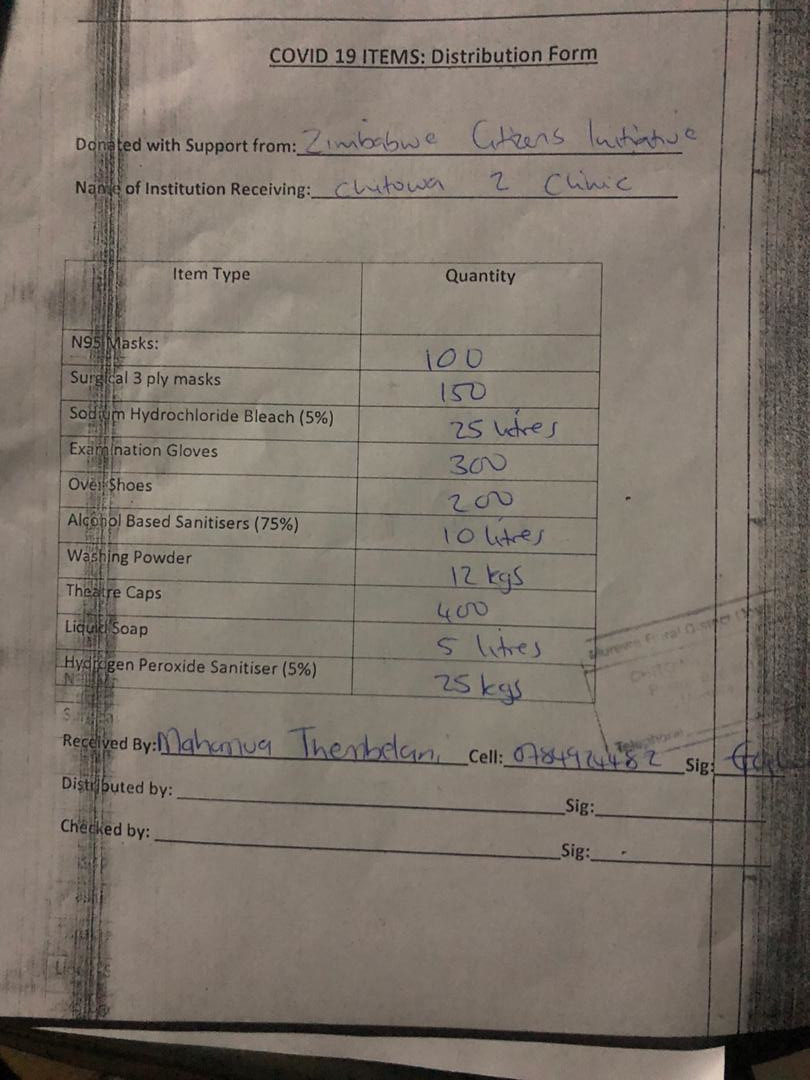 COVID 19 ITEMS: Distribution Form
Donated with Support from: Zimbabwe Citizens Initiative
Name of Institution Receiving: Chitowa 2 Clinic
Item Type Quantity
N95 Masks: 100
Surgical 3 ply masks 150
Sodium Hydrochloride Bleach (5%) 25 litres
Examination Gloves 300
Over Shoes 200
Alcohol Based Sanitisers (75%) 10 litres
Washing Powder 12 kgs
Theatre Caps 400
Liquid Soap 5 litres
Hydrogen Peroxide Sanitiser (5%) 25 kgs
Received By: Thembelani Cell: 0784924482 Sig:
Distributed by: Sig:
Checked by: Sig: